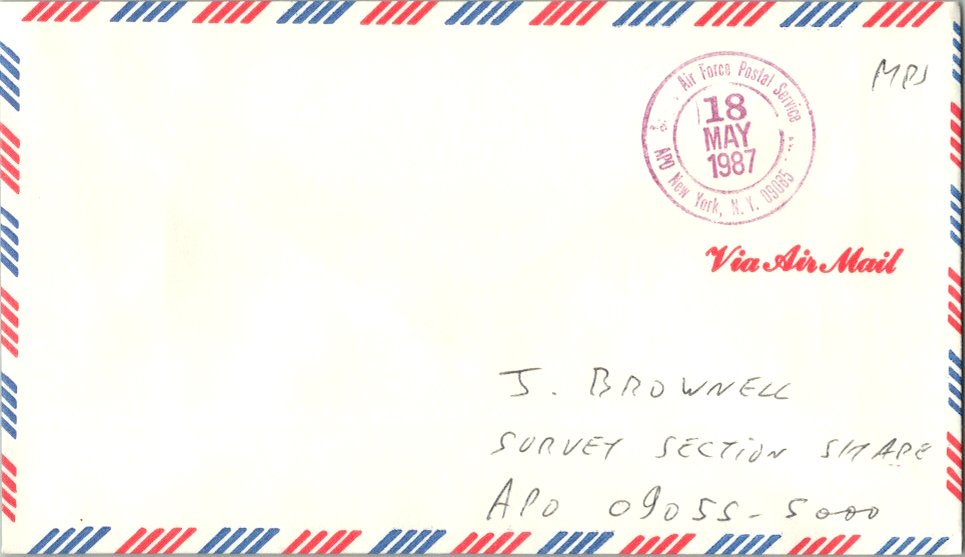 Air Force Postal Service
18
MAY
1987
APO New York, N. Y. 09085
MPS
Via Air Mail
J. BROWNELL
SURVEY SECTION SHAPE
APO 09055-5000